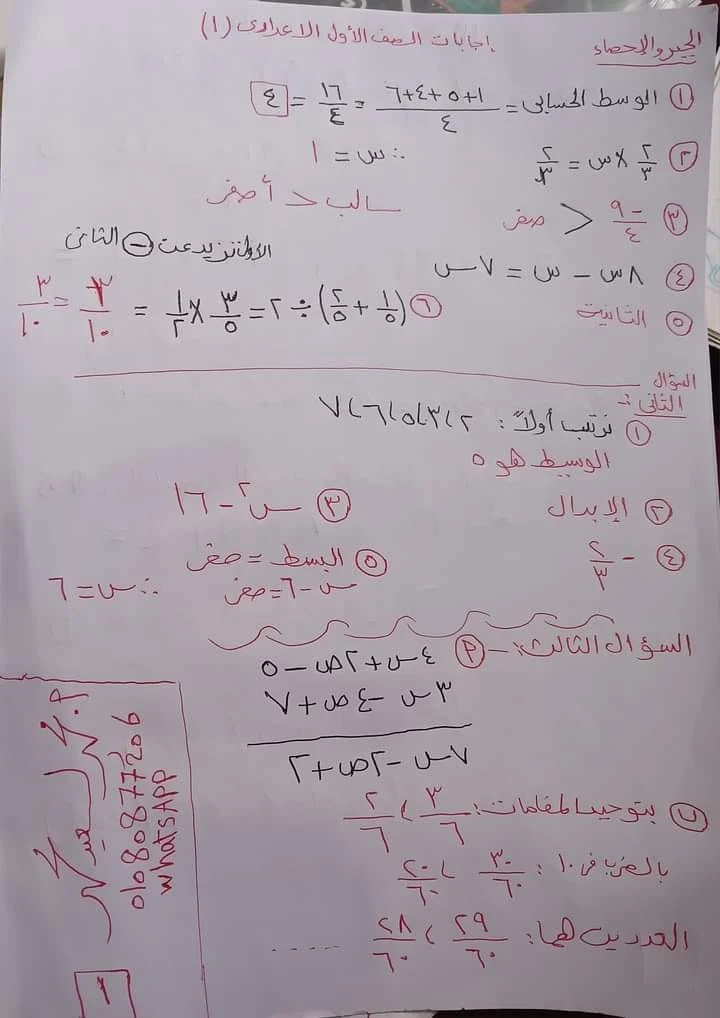 الجبر والإحصاء
إجابات الصف الأول الاعدادى (١)
① الوسط الحسابى = (١+٥+٤+٦)/٤ = ١٦/٤ = ٤
② ٢/٣ × س = ٢/٣ ∴ س = ١
③ -٩/٤ < صفر سالب < أصفر
④ ٨س - س = ٧س
⑤ الثانية
الأول تزيد عن الثانى
⑥ (١/٥ + ٢/٥) ÷ ٢ = ٣/٥ × ١/٢ = ٣/١٠ = ٣/١٠
السؤال
الثانى:-
① نرتب أولاً: ٢، ٣، ٥، ٦، ٧
الوسيط هو ٥
② الإبدال
③ س٢ - ١٦
④ -٢/٣
⑤ البسط = صفر
س - ٦ = صفر ∴ س = ٦
السؤال الثالث:- (م)
٤س + ٢ص - ٥
٣س - ٤ص + ٧
٧س - ٢ص + ٢
ب بتوحيد المقامات: ٣/٦ ، ٢/٦
بالضرب فى ١٠: ٣٠/٦٠ ، ٢٠/٦٠
العددين هما: ٢٩/٦٠ ، ٢٨/٦٠ .....
01080877206
whatsAPP
١